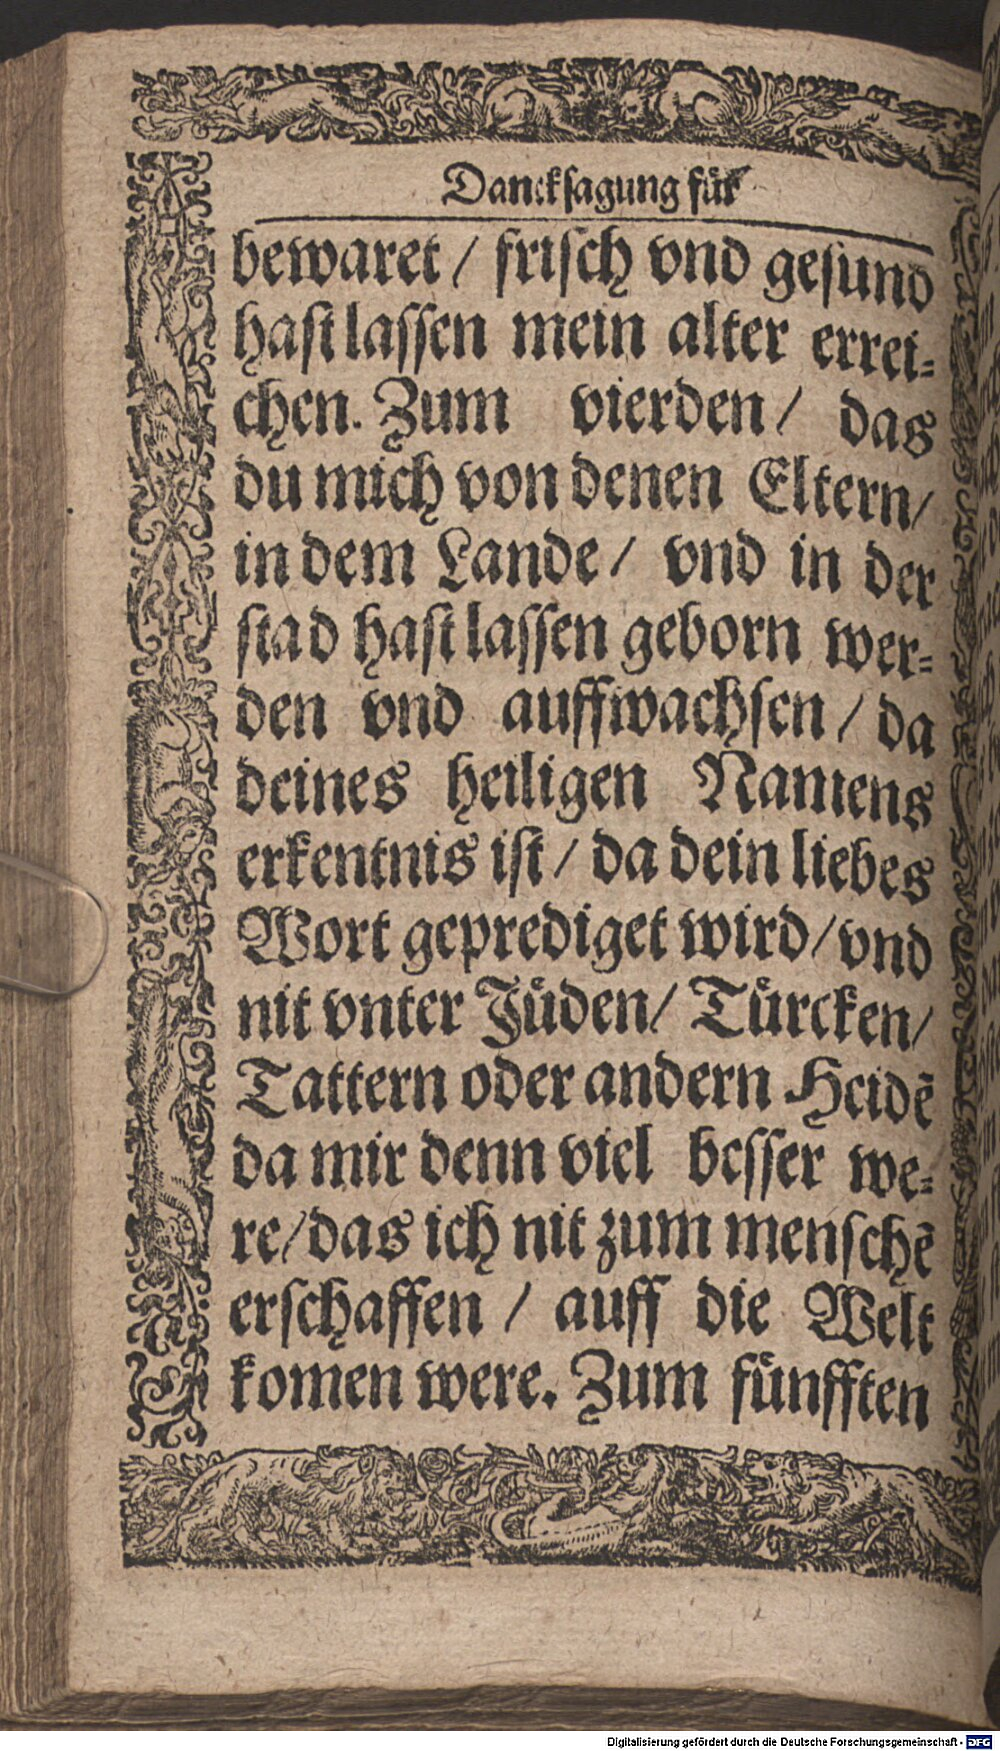 Dancksagung für
bewaret / frisch vnd gesund
hast lassen mein alter errei-
chen. Zum vierden / das
du mich von denen Eltern /
in dem Lande / vnd in der
stad hast lassen geborn wer-
den vnd auffwachsen / da
deines heiligen Namens
erkentnis ist / da dein liebes
Wort geprediget wird / vnd
nit vnter Jüden / Türcken /
Tattern oder andern Heidẽ
da mir denn viel besser we-
re / das ich nit zum menschẽ
erschaffen / auff die Welt
komen were. Zum fünfften
Digitalisierung gefördert durch die Deutsche Forschungsgemeinschaft - DFG